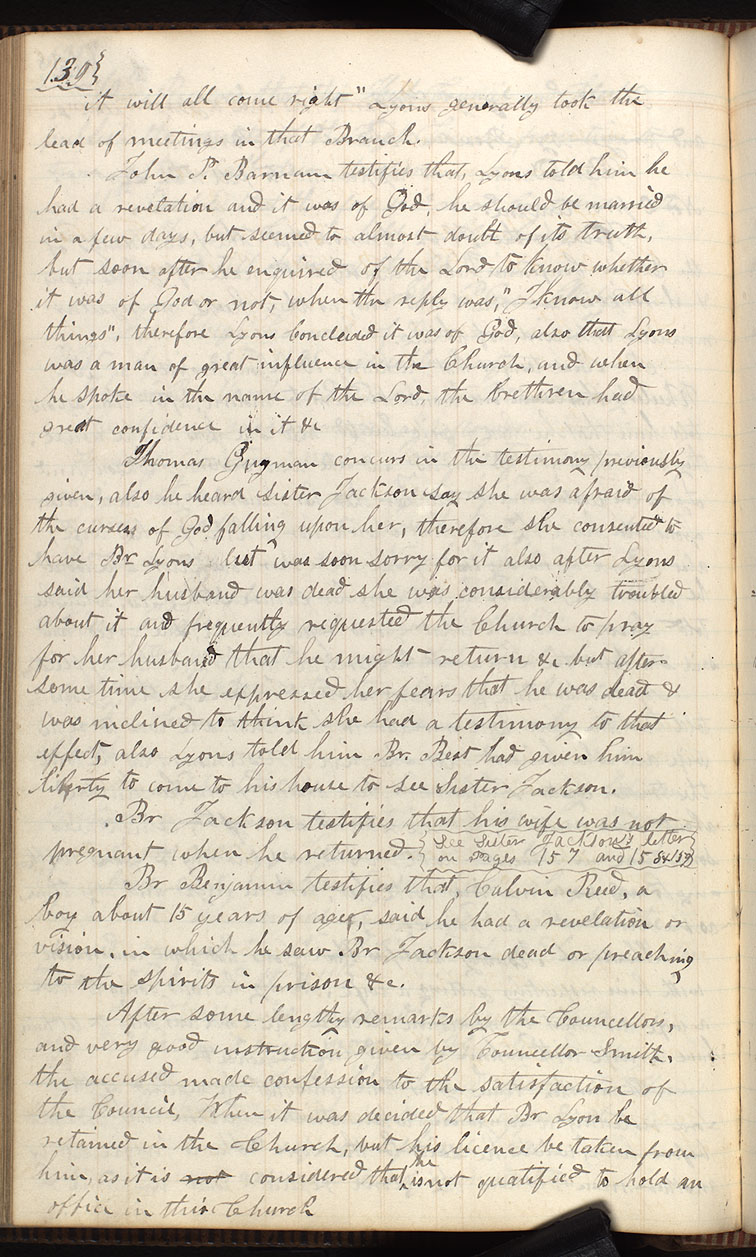 139}
it will all come right" Lyons generally took the
lead of meetings in that Branch.
John P. Barnam testifies that, Lyons told him he
had a revelation and it was of God, he should be married
in a few days, but seemed to almost doubt of its truth,
but soon after he enquired of the Lord to know whether
it was of God or not, when the reply was, "I know all
things", therefore Lyons Concluded it was of God, also that Lyons
was a man of great influence in the Church, and when
he spoke in the name of the Lord, the brethren had
great confidence in it &c
Thomas Gugman concurs in the testimony previously
given, also he heard Sister Jackson say she was afraid of
the curses of God falling upon her, therefore she consented to
have Br Lyons but was soon sorry for it also after Lyons
said her husband was dead she was considerably troubled
about it and frequently requested the Church to pray
for her husband, that he might return &c but after
some time she expressed her fears that he was dead &
was inclined to think she had a testimony to that
effect, also Lyons told him Br. Best had given him
liberty to come to his house to see Sister Jackson.
Br Jackson testifies that his wife was not
pregnant when he returned. {See Sister Jackson's letter
on Pages 157 and 158&159}
Br Benjamin testifies that, Calvin Reed, a
boy about 15 years of age, said he had a revelation or
vision, in which he saw Br Jackson dead or preaching
to the spirits in prison &c.
After some lengthy remarks by the Councellors,
and very good instruction, given by Councellor Smith,
the accused made confession to the satisfaction of
the Council, When it was decided that Br Lyon be
retained in the Church, but his licence be taken from
him, as it is not considered that he is not quatified to hold an
office in this Church